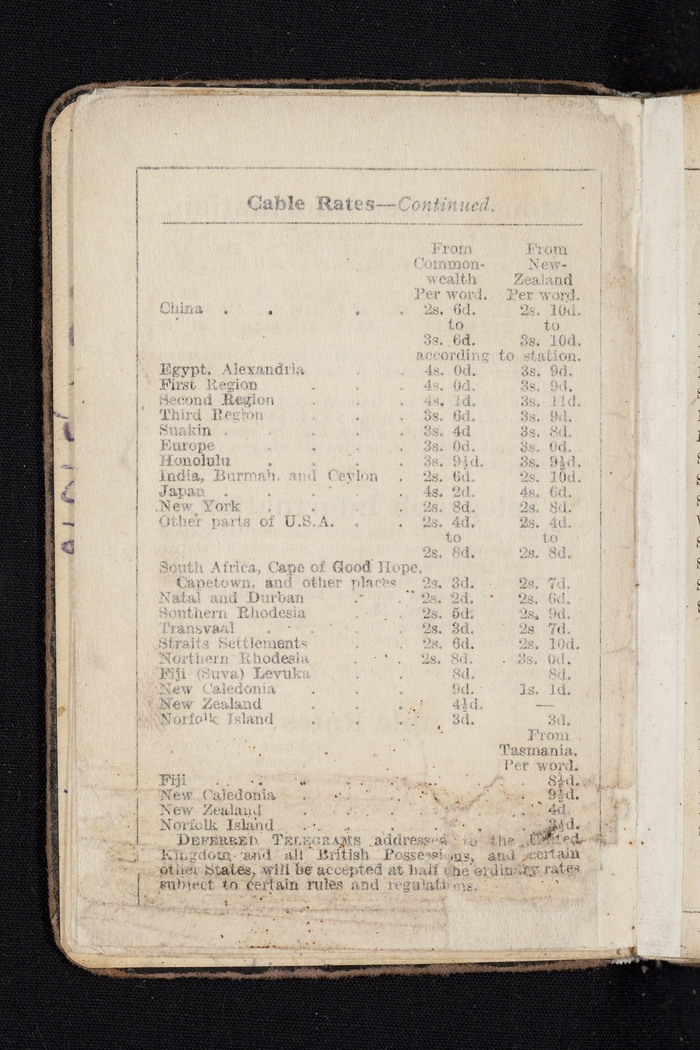 Cable Rates—Continued.
From From
Common- New-
wealth Zealand
Per word. Per word.
China . . . . 2s. 6d. 2s. 10d.
to to
3s. 6d. 3s. 10d.
according to station.
Egypt, Alexandria . . 4s. 0d. 3s. 9d.
First Region . . . 4s. 0d. 3s. 9d.
Second Region . . . 4s. 1d. 3s. 11d.
Third Region . . . 3s. 6d. 3s. 9d.
Suakin . . . . 3s. 4d 3s. 8d.
Europe . . . . 3s. 0d. 3s. 0d.
Honolulu . . . . 3s. 9½d. 3s. 9½d.
India, Burmah, and Ceylon . 2s. 6d. 2s. 10d.
Japan . . . . 4s. 2d. 4s. 6d.
New York . . . . 2s. 8d. 2s. 8d.
Other parts of U.S.A. . . 2s. 4d. 2s. 4d.
to to
2s. 8d. 2s. 8d.
South Africa, Cape of Good Hope,
Capetown, and other places 2s. 3d. 2s. 7d.
Natal and Durban . . 2s. 2d. 2s. 6d.
Southern Rhodesia . . 2s. 5d. 2s. 9d.
Transvaal . . . 2s. 3d. 2s 7d.
Straits Settlements . . 2s. 6d. 2s. 10d.
Northern Rhodesia . . 2s. 8d. 3s. 0d.
Fiji (Suva) Levuka . . 8d. 8d.
New Caledonia . . . 9d. 1s. 1d.
New Zealand . . . 4½d. —
Norfolk Island . . . 3d. 3d.
From
Tasmania.
Per word.
Fiji . . . . . 8½d.
New Caledonia . . . . 9½d.
New Zealand . . . . 4d.
Norfolk Island . . . .
DEFERRED TELEGRAMS addressed to the United
Kingdom and all British Possessions, and certain
other States, will be accepted at half the ordinary rates
subject to certain rules and regulations.